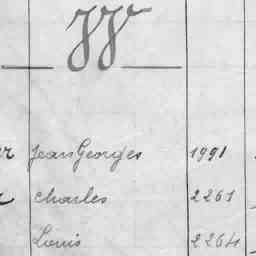 er Jean Georges 1991
r Charles 2261
Louis 2264